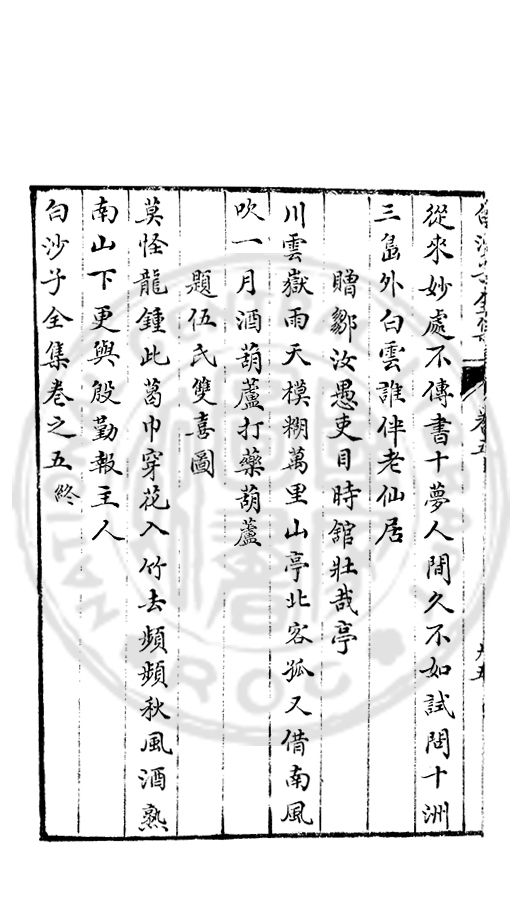 從來妙處不傳書十夢人間久不如試問十洲
三島外白雲誰伴老仙居
贈鄒汝愚吏目時館壯哉亭
川雲嶽雨天模糊萬里山亭北客孤又借南風
吹一月酒葫蘆打藥葫蘆
題伍氏雙喜圖
莫怪龍鍾此葛巾穿花入竹去頻頻秋風酒熟
南山下更與殷勤報主人
白沙子全集卷之五終